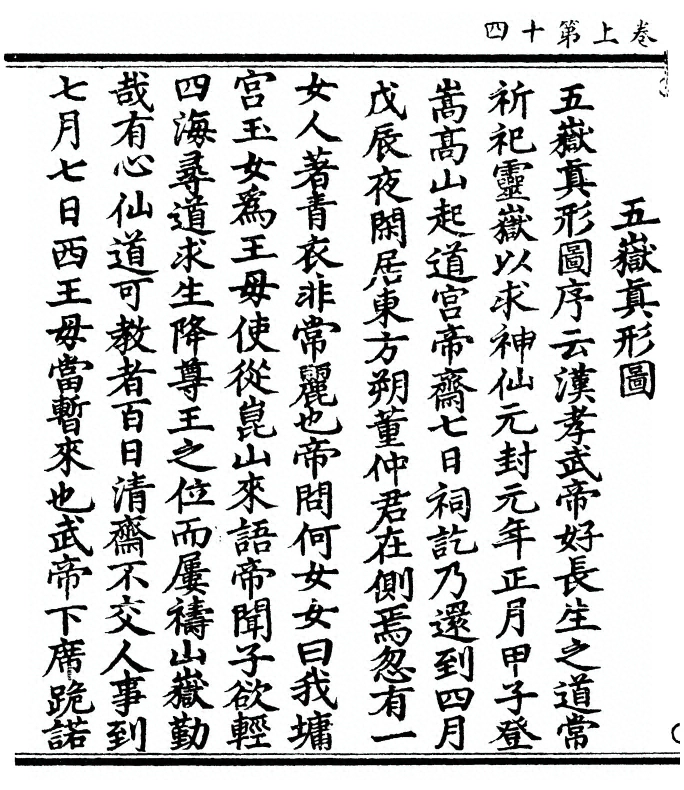 卷上第十四
五嶽真形圖
五嶽真形圖序云漢孝武帝好長生之道常
祈祀靈嶽以求神仙元封元年正月甲子登
嵩髙山起道宮帝齋七日祠訖乃還到四月
戊辰夜閑居東方朔董仲君在側焉忽有一
女人著青衣非常麗也帝問何女女曰我墉
宮玉女爲王母使從崑山來語帝聞子欲輕
四海尋道求生降尊王之位而屢禱山嶽勤
哉有心仙道可教者百日清齋不交人事到
七月七日西王母當暫來也武帝下席跪諾